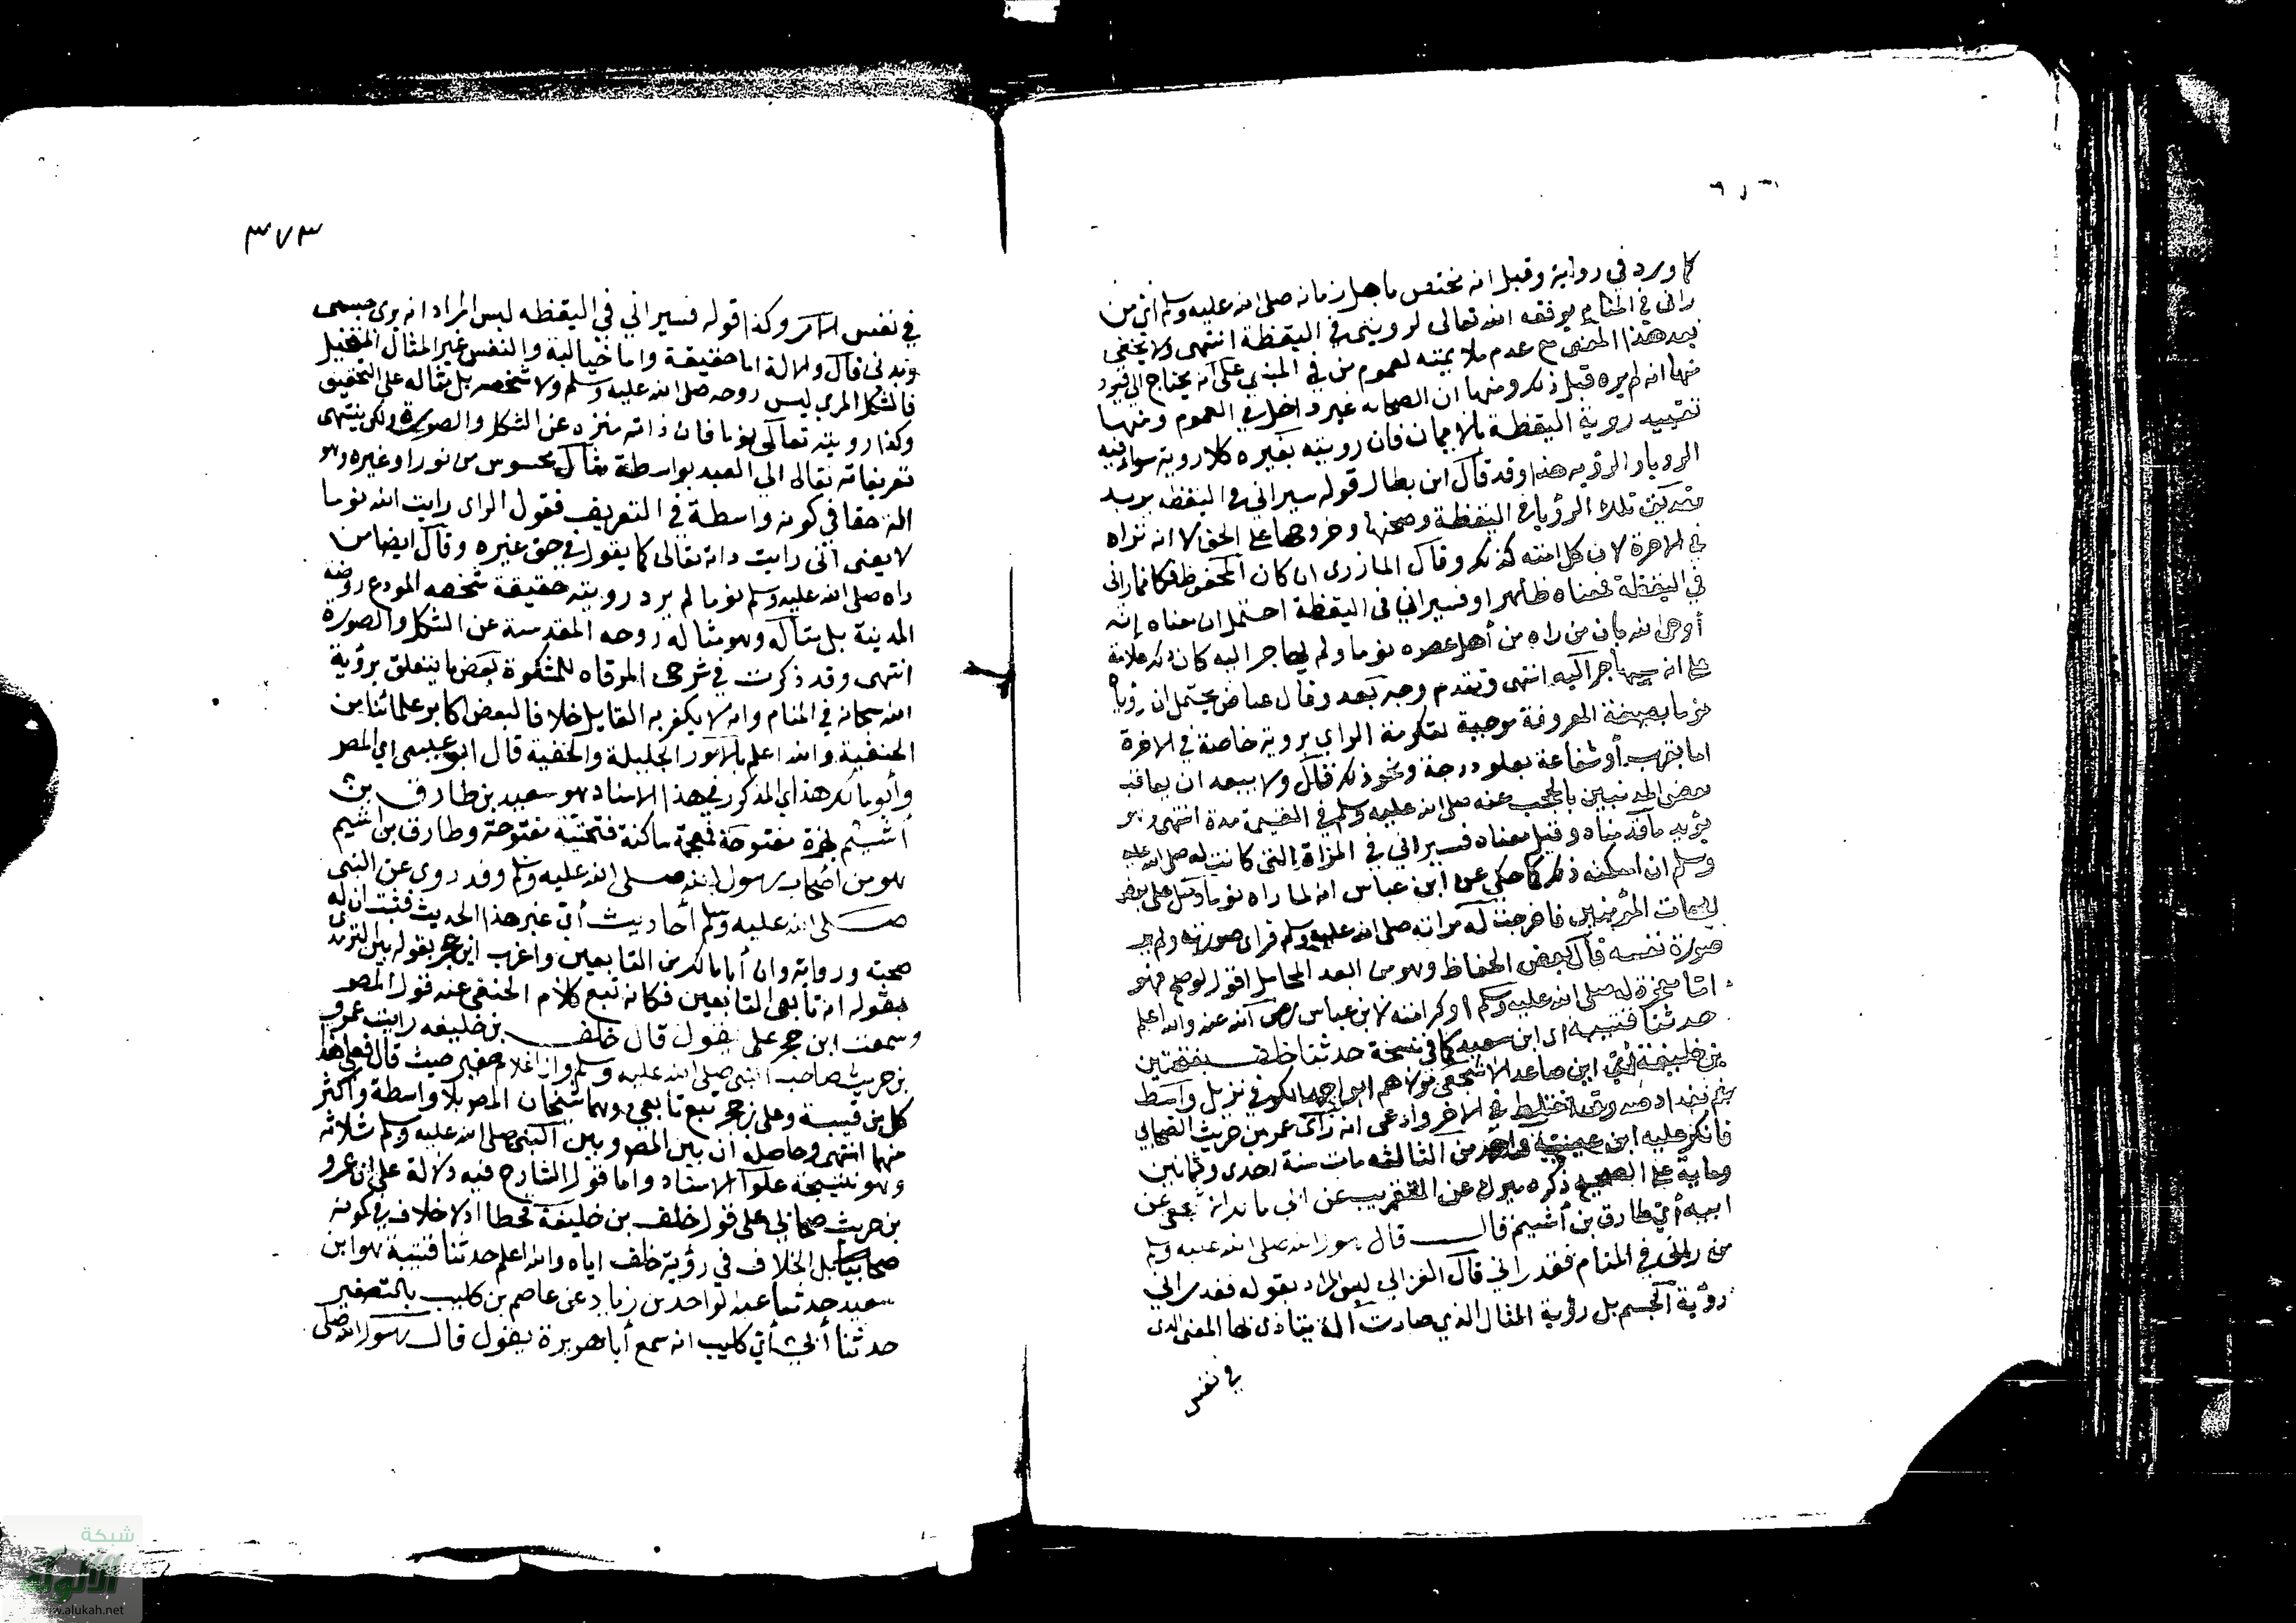 كما ورد في رواية وقيل انه يختص باهل زمانه صلى الله عليه وسلم أي من
رانى في المنام يوفقه الله تعالى لرويتى في اليقظة انتهى ولا يخفى
بعد هذا المعنى مع عدم ملايمته لعموم من في المبني على انه يحتاج الى قيود
منها انه لم يره قبل ذلك ومنها ان الصحابه غير داخل في العموم ومنها
تقييد روية اليقظة بالايمان فان رويته بغيره كلا روية سواء فيه
الرويا والرؤيه هذا وقد قال ابن بطال قوله سيراني في اليقظه يريد
تصديق تلك الرؤيا في اليقظة وصحتها وخروجها على الحق لا انه تراه
في الاخرة لان كل امته كذلك وقال المازرى ان كان المحفوظ فكانما رانى
في اليقظة فمعناه ظاهر او فسيراني في اليقظة احتمل ان معناه إنه
أوحى الله بان من راه من أهل عصره نوما ولم يهاجر اليه كان ذلك علامة
على انه سيهاجر اليه انتهى وتقدم وجه بعده وقال عياض يحتمل ان رؤياه
نوما بصفته المعروفة موجبة لتكرمة الراي بروية خاصة في الاخرة
اما بقرب أو شفاعة بعلو درجة ونحو ذلك قال ولا يبعد ان يعاقب
بعض المذنبين بالحجب عنه صلى الله عليه وسلم في القيمة مدة انتهى وهو
يؤيد ما قدمناه وقيل معناه فسيراني في المرآة التي كانت له صلى الله عليه
وسلم ان امكنه ذلك كما حكي عن ابن عباس انه لما راه نوما دخل على بعض
امهات المؤمنين فاخرجت له مراته صلى الله عليه وسلم فراى صورته ولم ير
صورة نفسه قال بعض الحفاظ وهو من ابعد المحامل اقول لو صح فهو
اما معجزة له صلى الله عليه وسلم او كرامته لابن عباس رضى الله عنه والله اعلم
حدثنا قتيبة اى ابن سعيد كما في نسخة حدثنا خلف بفتحتين
بن خليفة أي ابن صاعد الاشجعي مولاهم ابو احمد الكوفي نزيل واسط
ثم بغداد صدوق اختلط في الاخر وادعى انه رأى عمرو بن حريث الصحابي
فانكر عليه ابن عيينة واحمد من الثالثه مات سنة احدى وثمانين
وماية على الصحيح ذكره ميرك عن التقريب عن ابي مالك الاشجعي عن
ابيه أي طارق بن أشيم قال قال رسول الله صلى الله عليه وسلم
من رانى في المنام فقد راني قال الغزالي ليس المراد بقوله فقد راني
رؤية الجسم بل رؤية المثال الذي صارت آلة يتادى بها المعنى الذى
في نفس
٣٧٣
في نفس الامر وكذا قوله فسيراني في اليقظه ليس المراد انه يرى جسمى
وبدنى قال والالة اما حقيقة واما خيالية والنفس غير المثال المتخيل
فالشكل المرى ليس روحه صلى الله عليه وسلم ولا شخصه بل مثاله على التحقيق
وكذا رويته تعالى نوما فان ذاته منزه عن الشكل والصورة ولكن ينتهى
تعريفاته تعالى الى العبد بواسطة مثال محسوس من نور او غيره وهو
اله حقا في كونه واسطة في التعريف فقول الراى رايت الله نوما
لا يعنى أنى رايت ذاته تعالى كما يقول في حق غيره وقال ايضا من
راه صلى الله عليه وسلم نوما لم يرد رويته حقيقة شخصه المودع روضة
المدينة بل مثاله وهو مثاله روحه المقدسة عن الشكل والصورة
انتهى وقد ذكرت في شرحى المرقاه للمشكوة بعض ما يتعلق برؤية
الله سبحانه في المنام وانه لا يكفر به القايل خلافا لبعض اكابر علمائنا من
الحنفية والله اعلم بالامور الجليلة والخفية قال ابو عيسى اي المصر
وأبو مالك هذا أي المذكور في هذا الاسناد هو سعيد بن طارق بن
أشيم بهمزة مفتوحة فمعجمة ساكنة فتحتية مفتوحة وطارق بن اشيم
هو من اصحاب رسول الله صلى الله عليه وسلم وقد روى عن النبى
صلى الله عليه وسلم أحاديث أي غير هذا الحديث فثبت ان له
صحبته ورواية وان أبا مالك من التابعين واغرب ابن حجر بقوله بين الترمذى
بقوله انه تابعى التابعين فكانه تبع كلام الحنفى عند قول المصر
وسمعت ابن حجر على يقول قال خلف بن خليفه رايت عمرو
بن حريث صاحب النبى صلى الله عليه وسلم وانا غلام صغير حيث قال فعلى هذا
كل من قتيبة وعلى بن حجر تبع تابعي وهما شيخان المصر بلا واسطة واكثر
منهما انتهى وحاصله ان بين المصر وبين النبى صلى الله عليه وسلم ثلاثة
وهو نتيجة علو الاسناد واما قول الشارح فيه دلالة على ان عمرو
بن حريث صحابي على قول خلف بن خليفة فخطا اذ لا خلاف في كونه
صحابيا بل الخلاف في رؤية خلف اياه والله اعلم حدثنا قتيبة هو ابن
سعيد حدثنا عبد الواحد بن زياد عن عاصم بن كليب بالتصغير
حدثنا أبي أي كليب انه سمع أبا هريرة يقول قال رسول الله صلى
شبكة
الألوكة
www.alukah.net